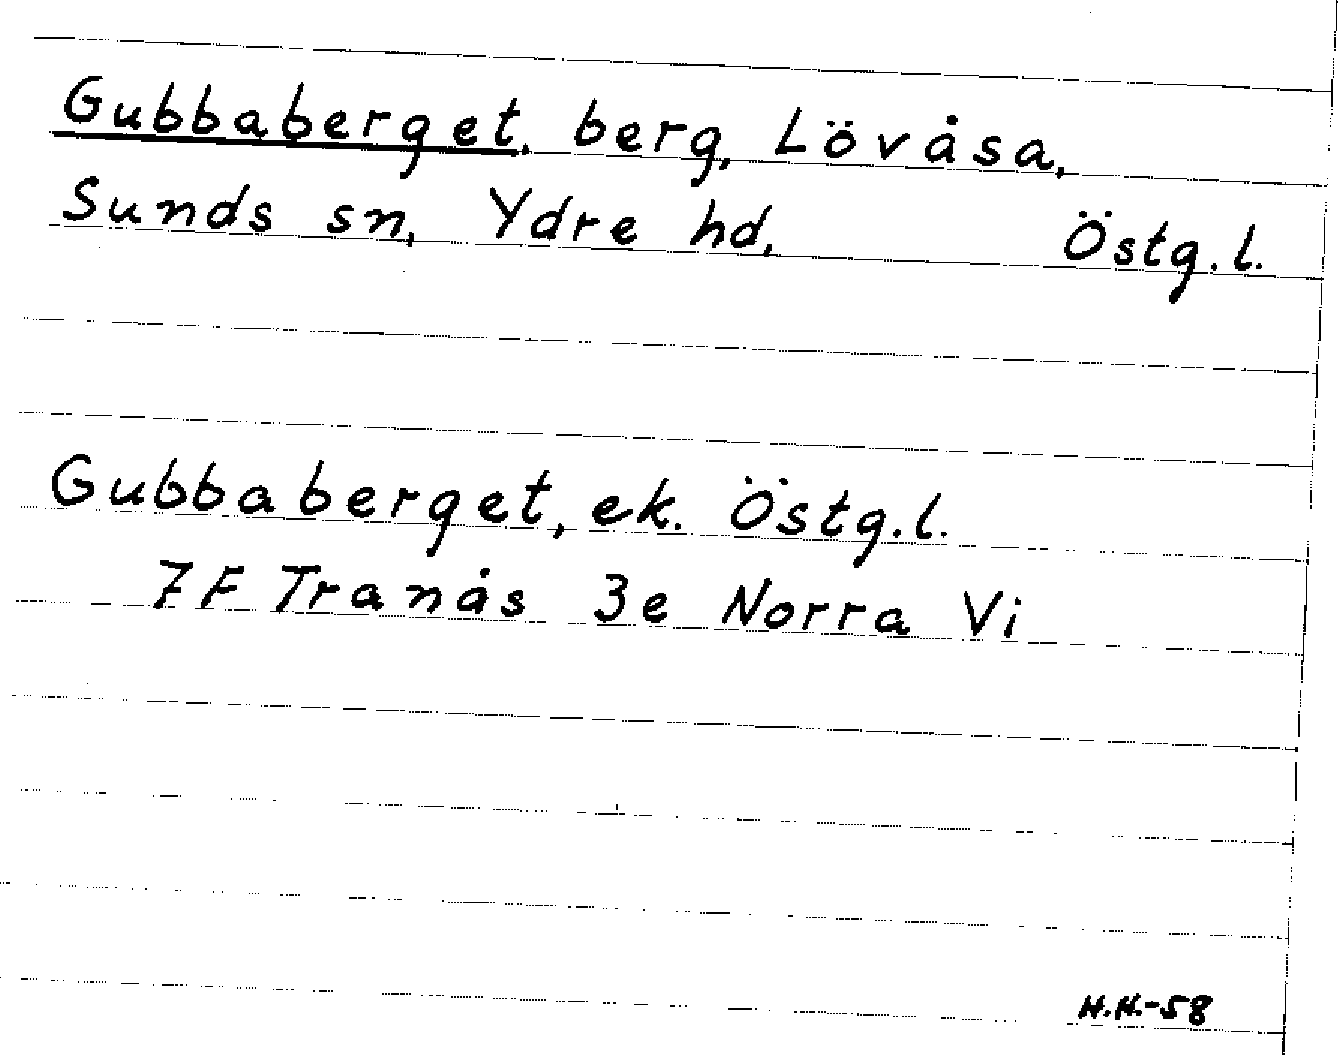 Gubbaberget, berg, Lövåsa,
Sunds sn, Ydre hd, Östg.l.
Gubbaberget, ek. Östg.l.
7F Tranås 3e Norra Vi
H.H.-58